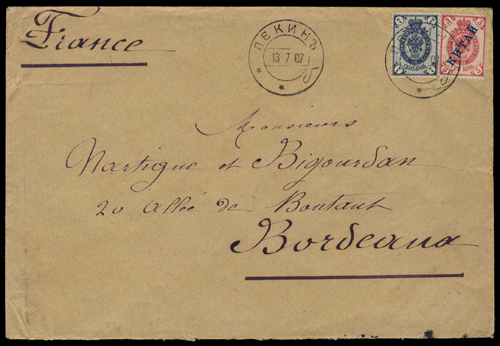 France
ПЕКИНЪ
13 7 07
7 7
3 КИТАЙ 3
7 7
3 3
Monsieurs
Martigue et Bigourdan
20 allée de Boutaut
Bordeaux